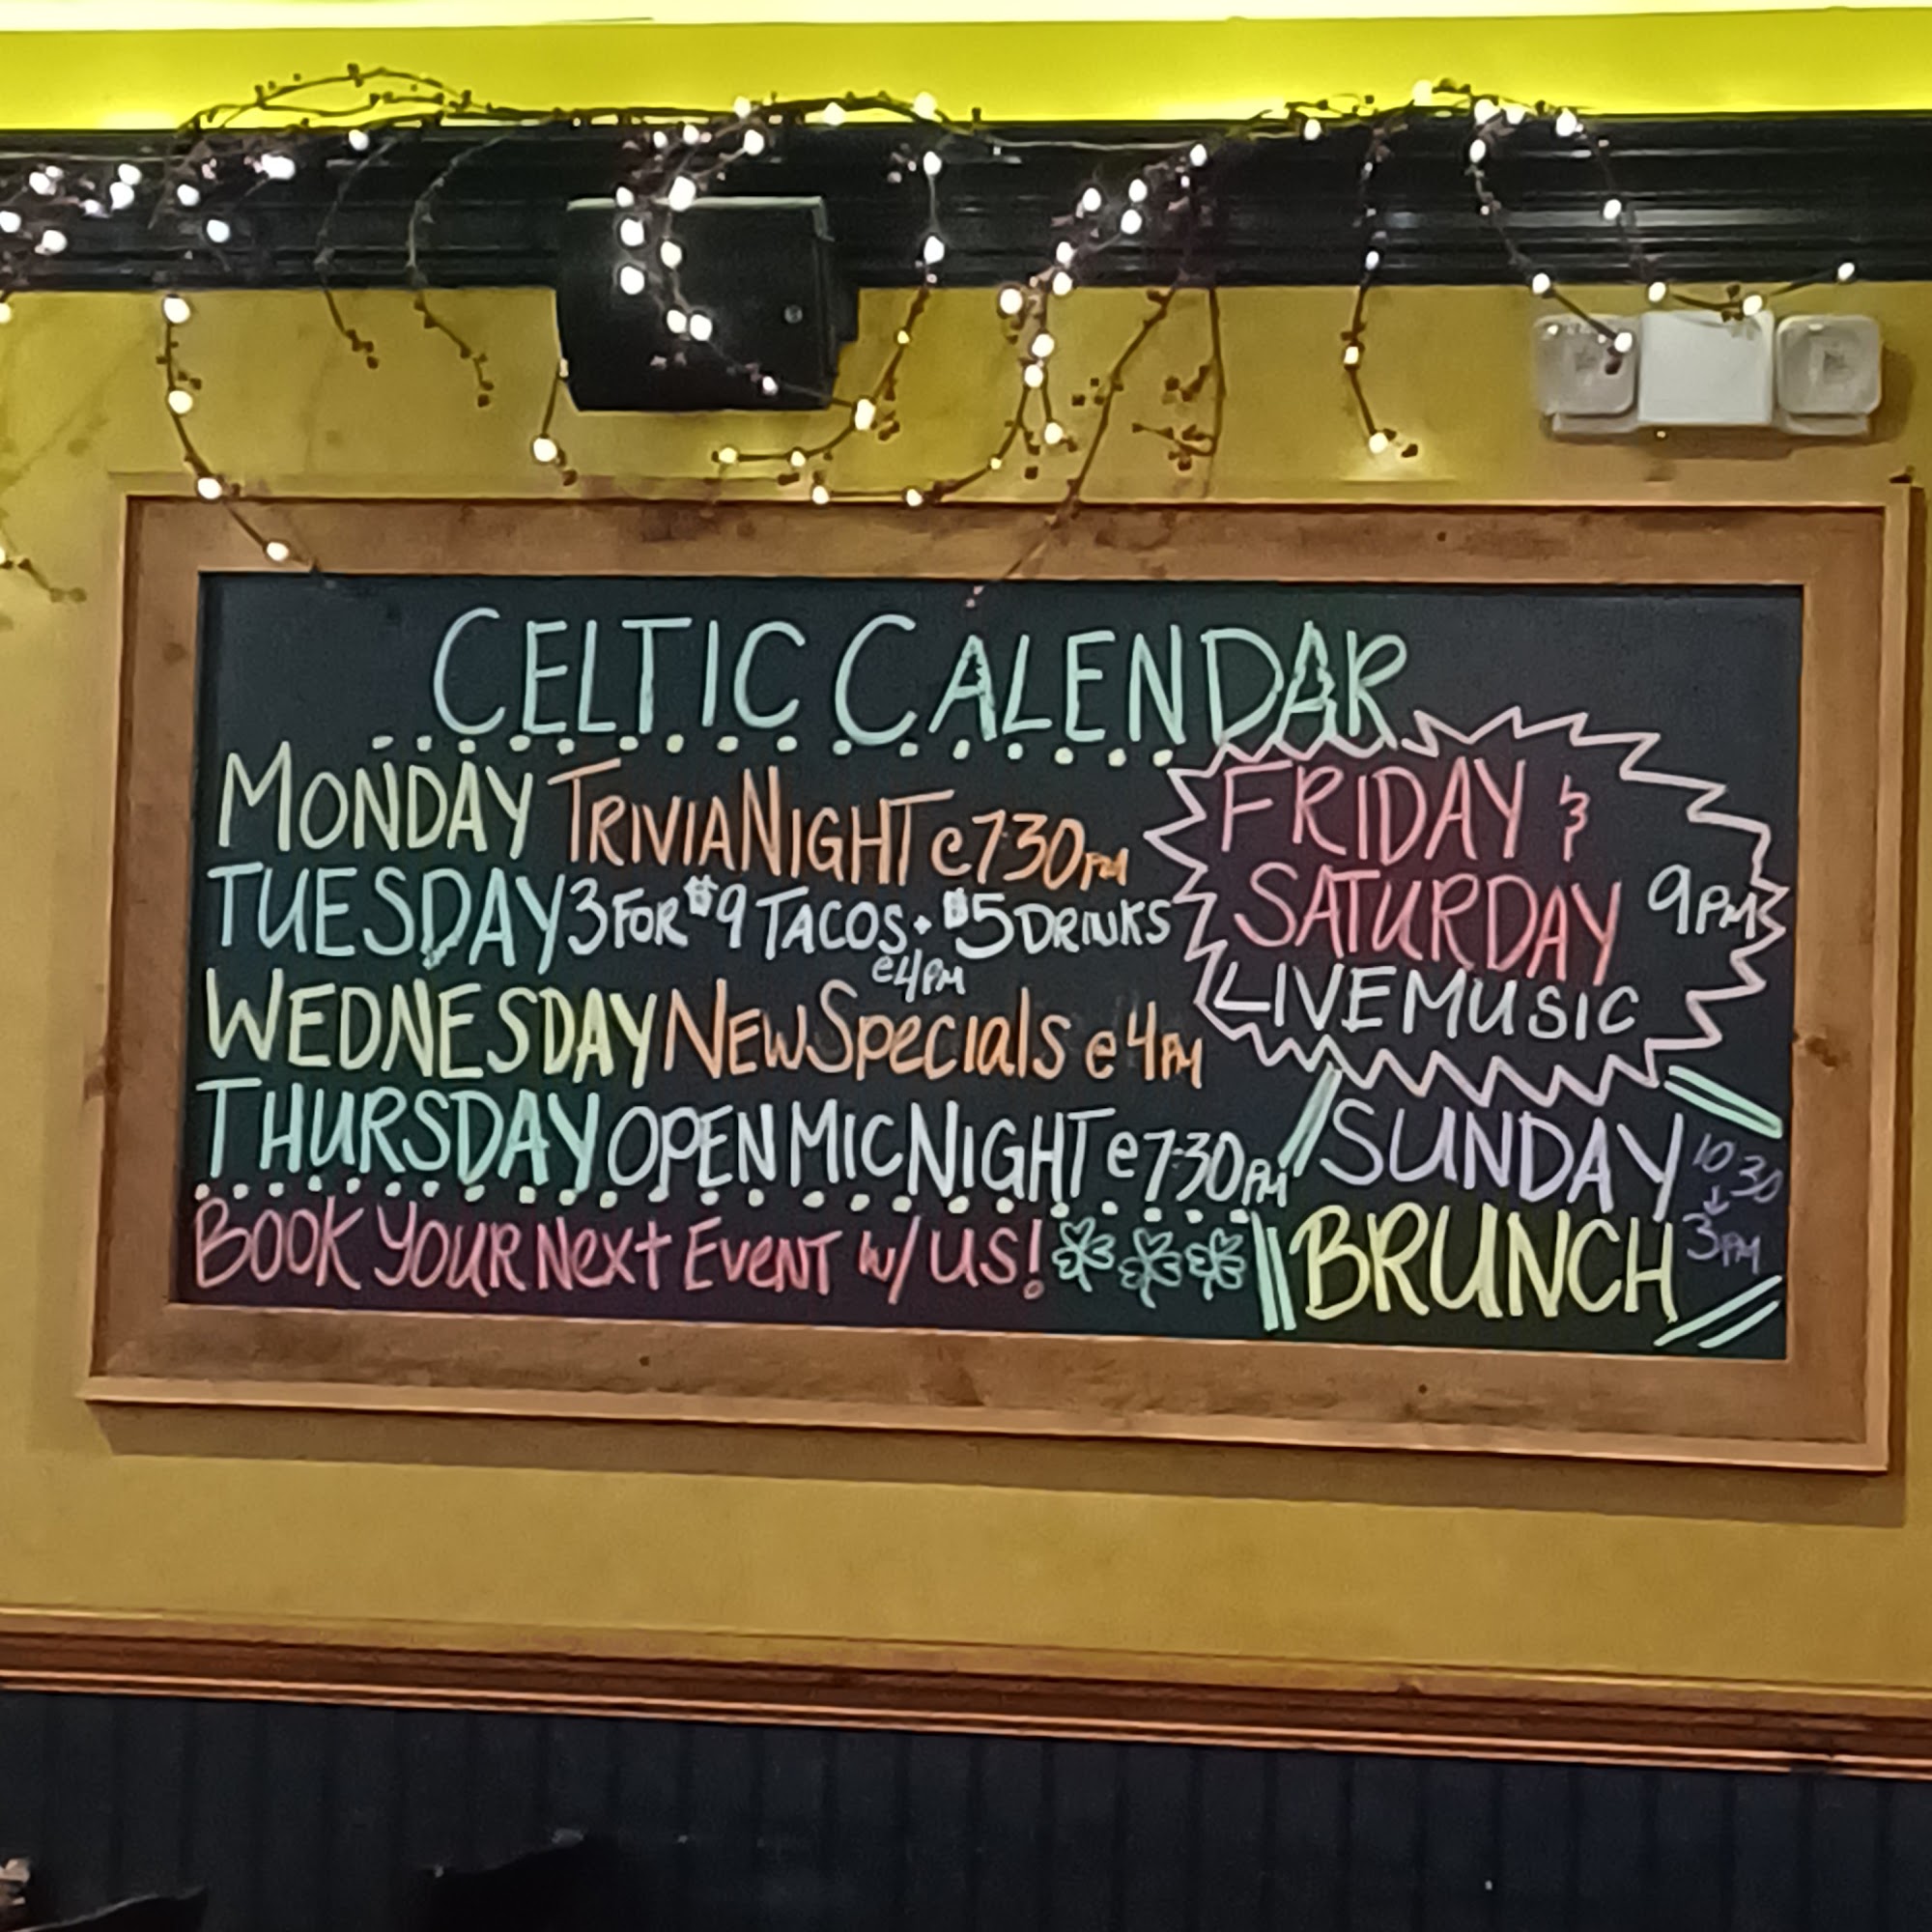 CELTIC CALENDAR
MONDAY TRIVIA NIGHT @ 7:30PM
TUESDAY 3 FOR $9 TACOS + $5 DRINKS
@4PM
WEDNESDAY NEW SPecials @ 4PM
THURSDAY OPEN MIC NIGHT @ 7:30PM
BOOK YOUR Next EVENT w/ US!
FRIDAY &
SATURDAY 9PM
LIVE MUSIC
SUNDAY 10:30
↓
BRUNCH 3PM